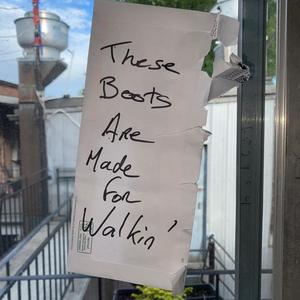 These
Boots
ARe
Made
FoR
Walkin'